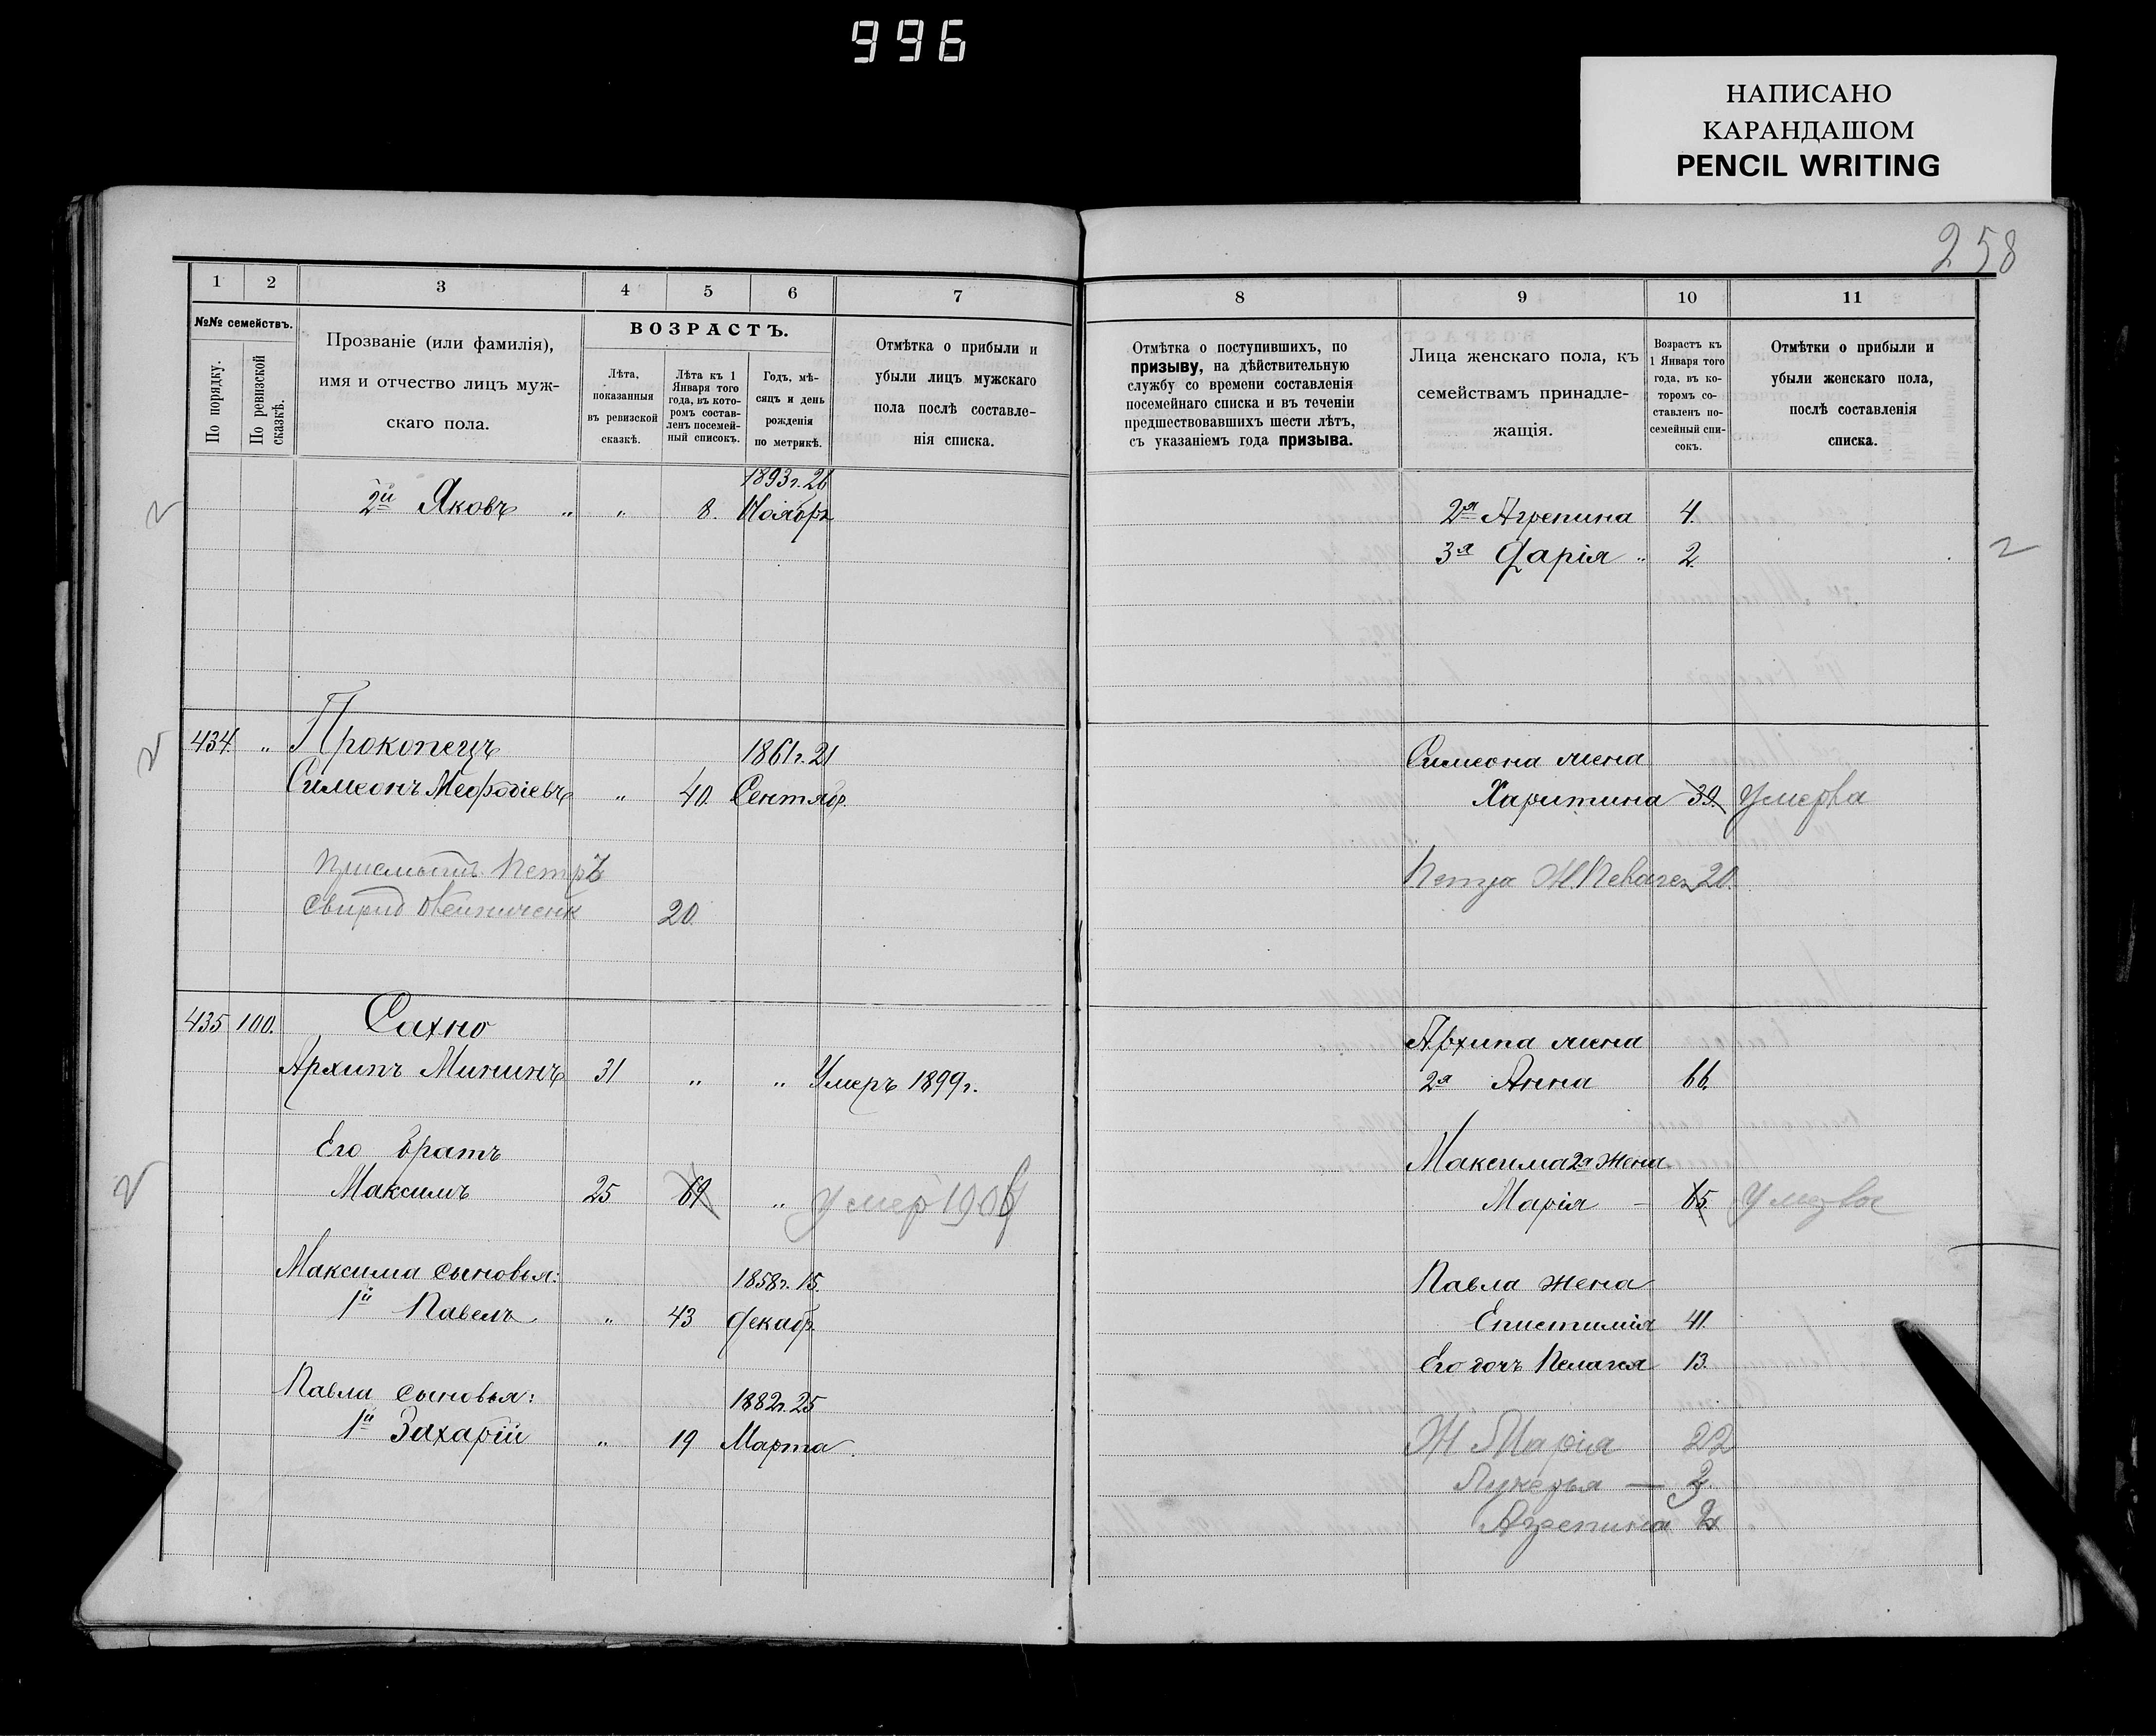 996
НАПИСАНО
КАРАНДАШОМ
PENCIL WRITING
258
1 2 3 4 5 6 7
№№ семействъ.
По порядку.
По ревизской сказкѣ.
Прозваніе (или фамилія),
имя и отчество лицъ муж-
скаго пола.
ВОЗРАСТЪ.
Лѣта,
показанныя
въ ревизской
сказкѣ.
Лѣта къ 1
Января того
года, въ кото-
ромъ состав-
ленъ посемей-
ный списокъ.
Годъ, мѣ-
сяцъ и день
рожденія
по метрикѣ.
Отмѣтка о прибыли и
убыли лицъ мужскаго
пола послѣ составле-
нія списка.
1893 г. 26
2й Яковъ " " 8. Ноября
434. " Прокопецъ 1861 г. 21
Симеонъ Меѳодіевъ " 40. Сентябр.
Петръ
Свирид 20.
435 100. Сахно
Архипъ Мининъ 31 " " Умеръ 1899 г.
Его братъ
Максимъ 25 69 " Умер 1906
Максима сыновья: 1858 г. 15.
1й Павелъ " 43 Декабр.
Павла сыновья: 1882 г. 25
1й Захарій " 19 Марта.
8 9 10 11
Отмѣтка о поступившихъ, по
призыву, на дѣйствительную
службу со времени составленія
посемейнаго списка и въ теченіи
предшествовавшихъ шести лѣтъ,
съ указаніемъ года призыва.
Лица женскаго пола, къ
семействамъ принадле-
жащія.
Возрастъ къ
1 Января того
года, въ ко-
торомъ со-
ставленъ по-
семейный спи-
сокъ.
Отмѣтки о прибыли и
убыли женскаго пола,
послѣ составленія
списка.
2я Агрепина 4.
3я Дарія " 2.
Симеона жена
Харитина 39. Умерла
Петра Ж. 20.
Архипа жена
2я Анна 66.
Максима 2я жена
Марія – 65. Умерла
Павла жена
Епистимія 41.
Его дочь Пелагея 13.
Ж Марія 22
Лукерья — 3.
Агрепина